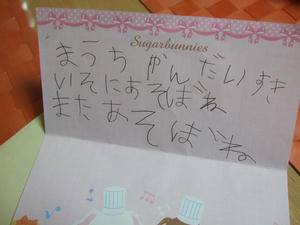 Sugarbunnies
まうちゃんだいすき
いそにあそばね
またあそばね